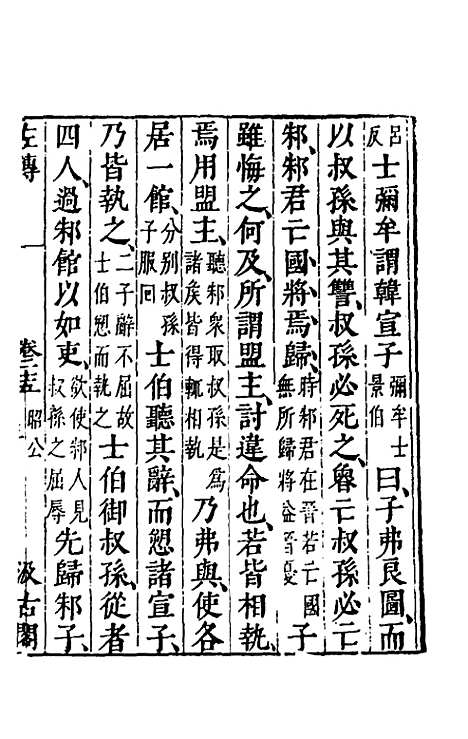 呂反士彌牟謂韓宣子彌牟士景伯曰、子弗良圖、而
以叔孫與其讐、叔孫必死之、魯亡叔孫必亡
邾、邾君亡國、將焉歸、時邾君在晉若亡國無所歸將益晉憂子
雖悔之、何及、所謂盟主、討違命也、若皆相執、
焉用盟主、聽邾衆取叔孫是爲諸矦皆得輒相執乃弗與、使各
居一館、分别叔孫子服回士伯聽其辭、而愬諸宣子、
乃皆執之、二子辭不屈故士伯愬而執之士伯御叔孫、從者
四人、過邾館以如吏、欲使邾人見叔孫之屈辱先歸邾子、
左傳 卷二十五 昭公 汲古閣